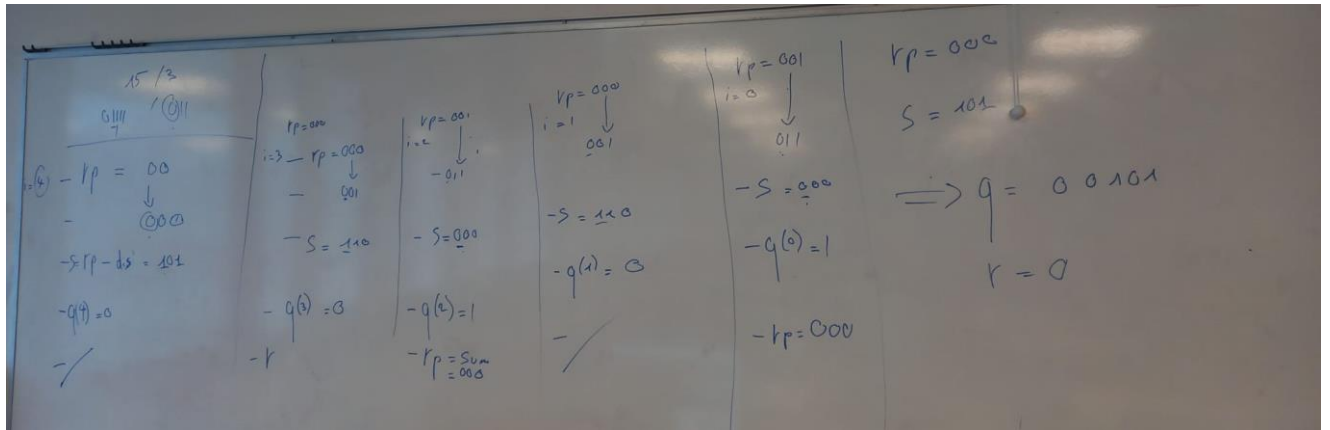 15/3
01111 / 011
i=4 - rp = 00
↓
- 000
- S=rp-dsi = 101
- q(4)=0
- /
rp=000
i=3 - rp=000
↓
- 001
- S=110
- q(3)=0
- r
rp=001
i=2
↓
- 011
- S=000
- q(2)=1
- rp=Sum
=000
rp=000
i=1
↓
001
- S=110
- q(1)=0
- /
rp=001
i=0
↓
011
- S=000
- q(0)=1
- rp=000
rp=000
S=101
⟹ q= 00101
r=0